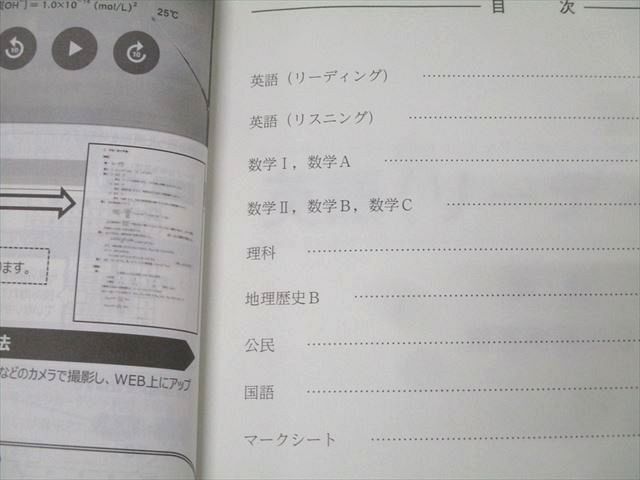 [OH⁻] = 1.0×10⁻¹⁴ (mol/L)²
25℃
10
10
ます。
法
などのカメラで撮影し、WEB上にアップ
目 次
英語（リーディング） ……………………
英語（リスニング） ……………………
数学Ⅰ，数学A ……………………
数学Ⅱ，数学B，数学C ……………………
理科 ……………………
地理歴史B ……………………
公民 ……………………
国語 ……………………
マークシート ……………………